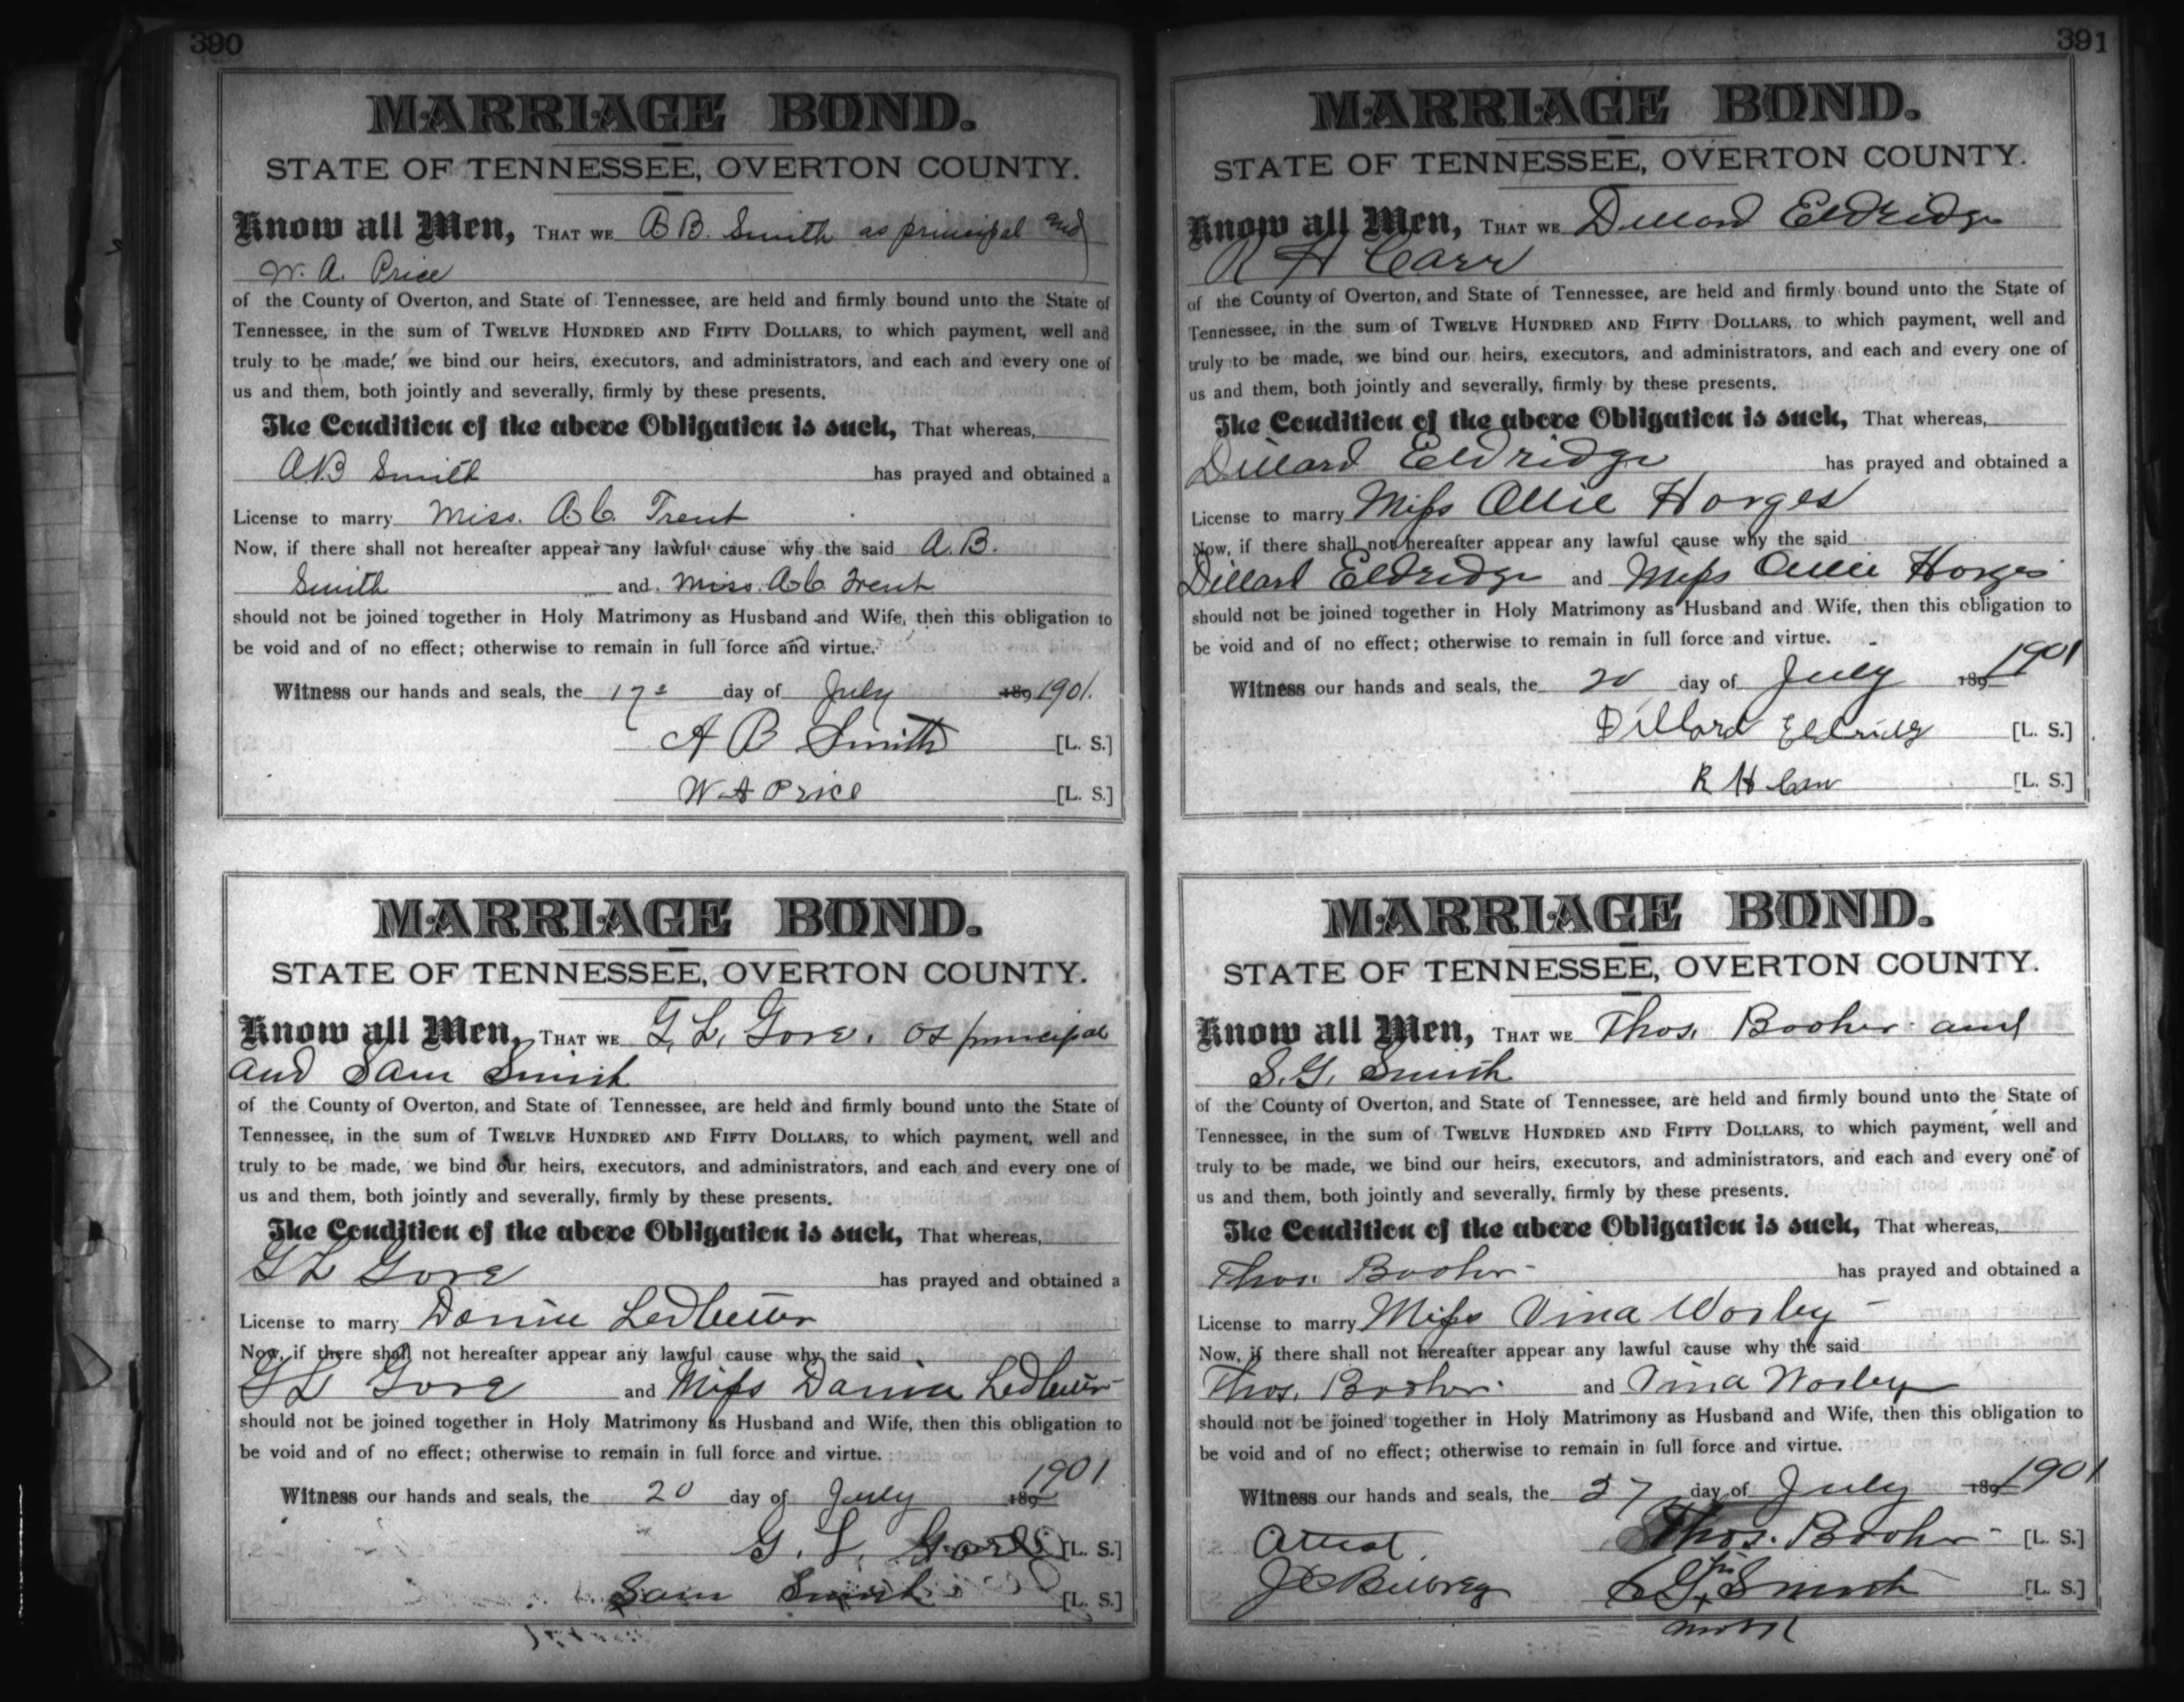 390
MARRIAGE BOND.
STATE OF TENNESSEE, OVERTON COUNTY.
Know all Men, THAT WE A B. Smith as principal and
W. A. Price
of the County of Overton, and State of Tennessee, are held and firmly bound unto the State of
Tennessee, in the sum of TWELVE HUNDRED AND FIFTY DOLLARS, to which payment, well and
truly to be made, we bind our heirs, executors, and administrators, and each and every one of
us and them, both jointly and severally, firmly by these presents.
The Condition of the above Obligation is such, That whereas,
A.B Smith has prayed and obtained a
License to marry Miss. A. C. Trent
Now, if there shall not hereafter appear any lawful cause why the said A. B.
Smith and Miss. A C Trent
should not be joined together in Holy Matrimony as Husband and Wife, then this obligation to
be void and of no effect; otherwise to remain in full force and virtue.
Witness our hands and seals, the 17 day of July 189 1901.
A B Smith [L. S.]
W A Price [L. S.]
MARRIAGE BOND.
STATE OF TENNESSEE, OVERTON COUNTY.
Know all Men, THAT WE G. L. Gore. as principal
and Sam Smith
of the County of Overton, and State of Tennessee, are held and firmly bound unto the State of
Tennessee, in the sum of TWELVE HUNDRED AND FIFTY DOLLARS, to which payment, well and
truly to be made, we bind our heirs, executors, and administrators, and each and every one of
us and them, both jointly and severally, firmly by these presents.
The Condition of the above Obligation is such, That whereas,
G L Gore has prayed and obtained a
License to marry Ledbetter
Now, if there shall not hereafter appear any lawful cause why the said
G L Gore and Miss Ledbetter
should not be joined together in Holy Matrimony as Husband and Wife, then this obligation to
be void and of no effect; otherwise to remain in full force and virtue.
Witness our hands and seals, the 20 day of July 189 1901
G. L. Gore [L. S.]
Sam Smith [L. S.]
391
MARRIAGE BOND.
STATE OF TENNESSEE, OVERTON COUNTY.
Know all Men, THAT WE Dillard Eldridge
R H Carr
of the County of Overton, and State of Tennessee, are held and firmly bound unto the State of
Tennessee, in the sum of TWELVE HUNDRED AND FIFTY DOLLARS, to which payment, well and
truly to be made, we bind our heirs, executors, and administrators, and each and every one of
us and them, both jointly and severally, firmly by these presents.
The Condition of the above Obligation is such, That whereas,
Dillard Eldridge has prayed and obtained a
License to marry Miss Ollie Horges
Now, if there shall not hereafter appear any lawful cause why the said
Dillard Eldridge and Miss Ollie Horges
should not be joined together in Holy Matrimony as Husband and Wife, then this obligation to
be void and of no effect; otherwise to remain in full force and virtue.
Witness our hands and seals, the 20 day of July 189 1901
Dillard Eldridg [L. S.]
R H Carr [L. S.]
MARRIAGE BOND.
STATE OF TENNESSEE, OVERTON COUNTY.
Know all Men, THAT WE Thos. Booher and
S. G. Smith
of the County of Overton, and State of Tennessee, are held and firmly bound unto the State of
Tennessee, in the sum of TWELVE HUNDRED AND FIFTY DOLLARS, to which payment, well and
truly to be made, we bind our heirs, executors, and administrators, and each and every one of
us and them, both jointly and severally, firmly by these presents.
The Condition of the above Obligation is such, That whereas,
Thos. Booher has prayed and obtained a
License to marry Miss Vina Worley
Now, if there shall not hereafter appear any lawful cause why the said
Thos. Booher and Vina Worley
should not be joined together in Holy Matrimony as Husband and Wife, then this obligation to
be void and of no effect; otherwise to remain in full force and virtue.
Witness our hands and seals, the 27 day of July 189 1901
Attest. Thos. Booher [L. S.]
J C Bilbrey S G Smith [L. S.]